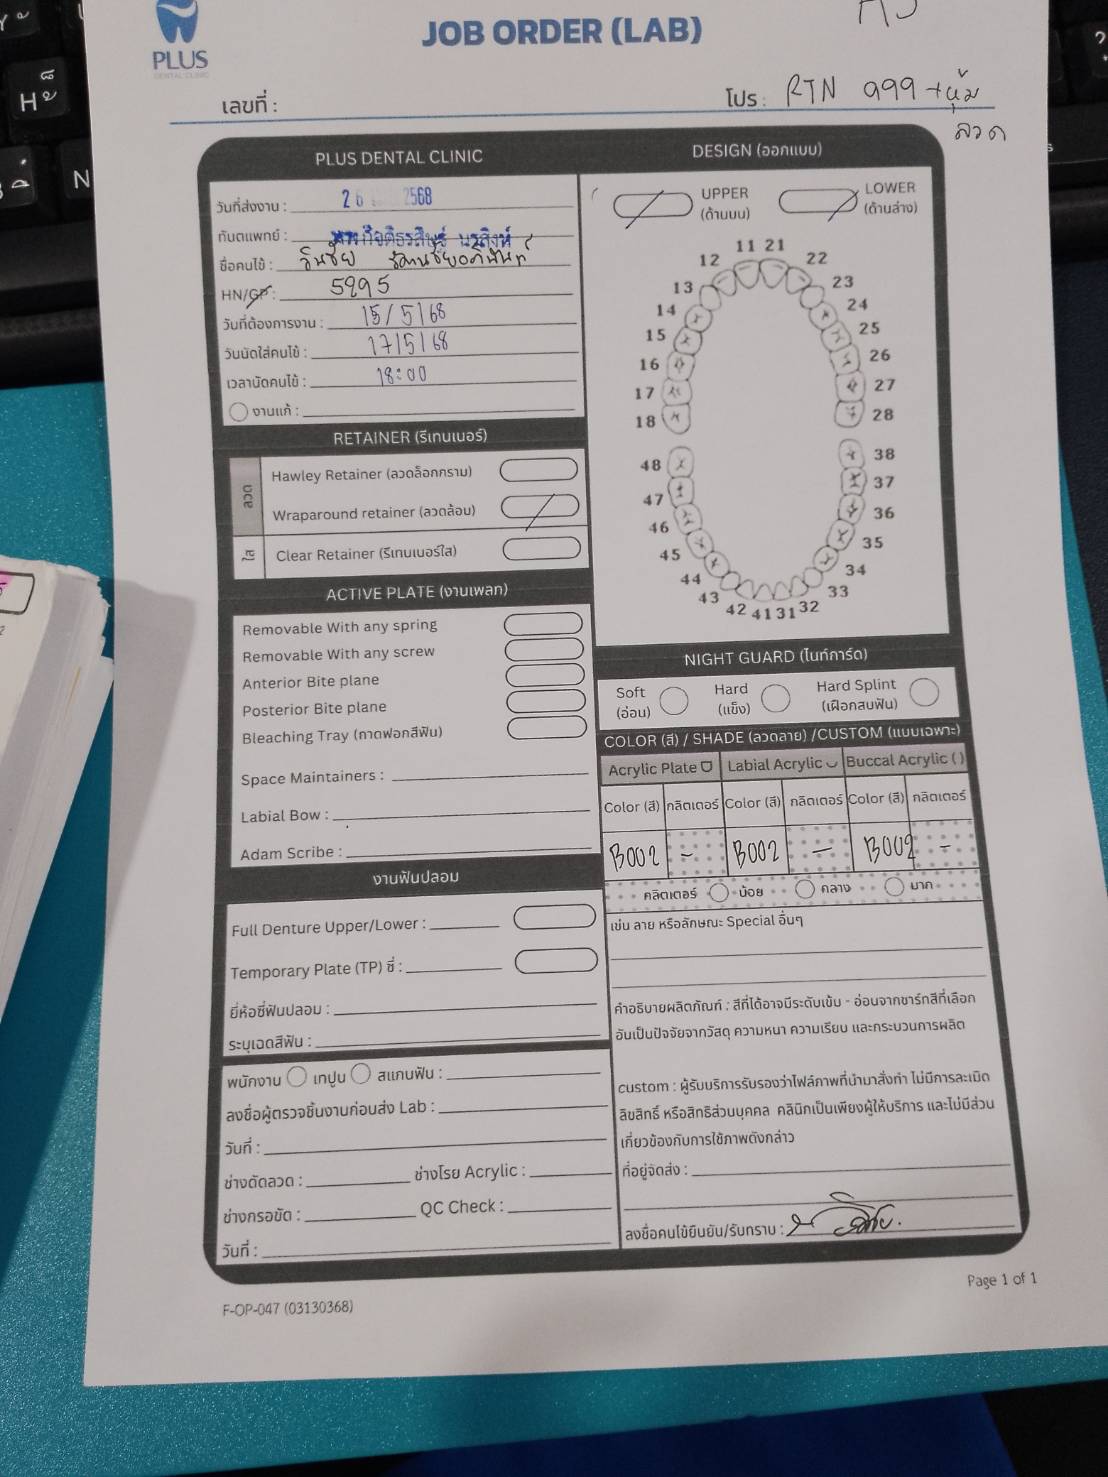 PLUS
DENTAL CLINIC
JOB ORDER (LAB)
เลขที่ :
โปร : RTN 999 +หุ้ม
ลวด
PLUS DENTAL CLINIC
วันที่ส่งงาน : 26 2568
ทันตแพทย์ :
ชื่อคนไข้ :
HN/GP : 5995
วันที่ต้องการงาน : 15/5/68
วันนัดใส่คนไข้ : 17/5/68
เวลานัดคนไข้ : 18:00
งานแก้ :
RETAINER (รีเทนเนอร์)
ลวด
Hawley Retainer (ลวดล็อกกราม)
Wraparound retainer (ลวดล้อม)
ใส
Clear Retainer (รีเทนเนอร์ใส)
ACTIVE PLATE (งานเพลท)
Removable With any spring
Removable With any screw
Anterior Bite plane
Posterior Bite plane
Bleaching Tray (ถาดฟอกสีฟัน)
Space Maintainers :
Labial Bow :
Adam Scribe :
งานฟันปลอม
Full Denture Upper/Lower :
Temporary Plate (TP) ซี่ :
ยี่ห้อซี่ฟันปลอม :
ระบุเฉดสีฟัน :
พนักงาน เทปูน สแกนฟัน :
ลงชื่อผู้ตรวจชิ้นงานก่อนส่ง Lab :
วันที่ :
ช่างดัดลวด : ช่างโรย Acrylic :
ช่างกรอขัด : QC Check :
วันที่ :
DESIGN (ออกแบบ)
UPPER
(ด้านบน)
LOWER
(ด้านล่าง)
11 21
12 22
13 23
14 24
15 25
16 26
17 27
18 28
48 38
47 37
46 36
45 35
44 34
43 33
42 41 31 32
NIGHT GUARD (ไนท์การ์ด)
Soft
(อ่อน)
Hard
(แข็ง)
Hard Splint
(เฝือกสบฟัน)
COLOR (สี) / SHADE (ลวดลาย) /CUSTOM (แบบเฉพาะ)
Acrylic Plate Labial Acrylic Buccal Acrylic ( )
Color (สี) กลิตเตอร์ Color (สี) กลิตเตอร์ Color (สี) กลิตเตอร์
B002 - B002 - B002 -
กลิตเตอร์ น้อย กลาง มาก
เช่น ลาย หรือลักษณะ Special อื่นๆ
คำอธิบายผลิตภัณฑ์ : สีที่ได้อาจมีระดับเข้ม - อ่อนจากชาร์ทสีที่เลือก
อันเป็นปัจจัยจากวัสดุ ความหนา ความเรียบ และกระบวนการผลิต
custom : ผู้รับบริการรับรองว่าไฟล์ภาพที่นำมาสั่งทำ ไม่มีการละเมิด
ลิขสิทธิ์ หรือสิทธิส่วนบุคคล คลินิกเป็นเพียงผู้ให้บริการ และไม่มีส่วน
เกี่ยวข้องกับการใช้ภาพดังกล่าว
ที่อยู่จัดส่ง :
ลงชื่อคนไข้ยืนยัน/รับทราบ :
Page 1 of 1
F-OP-047 (03130368)